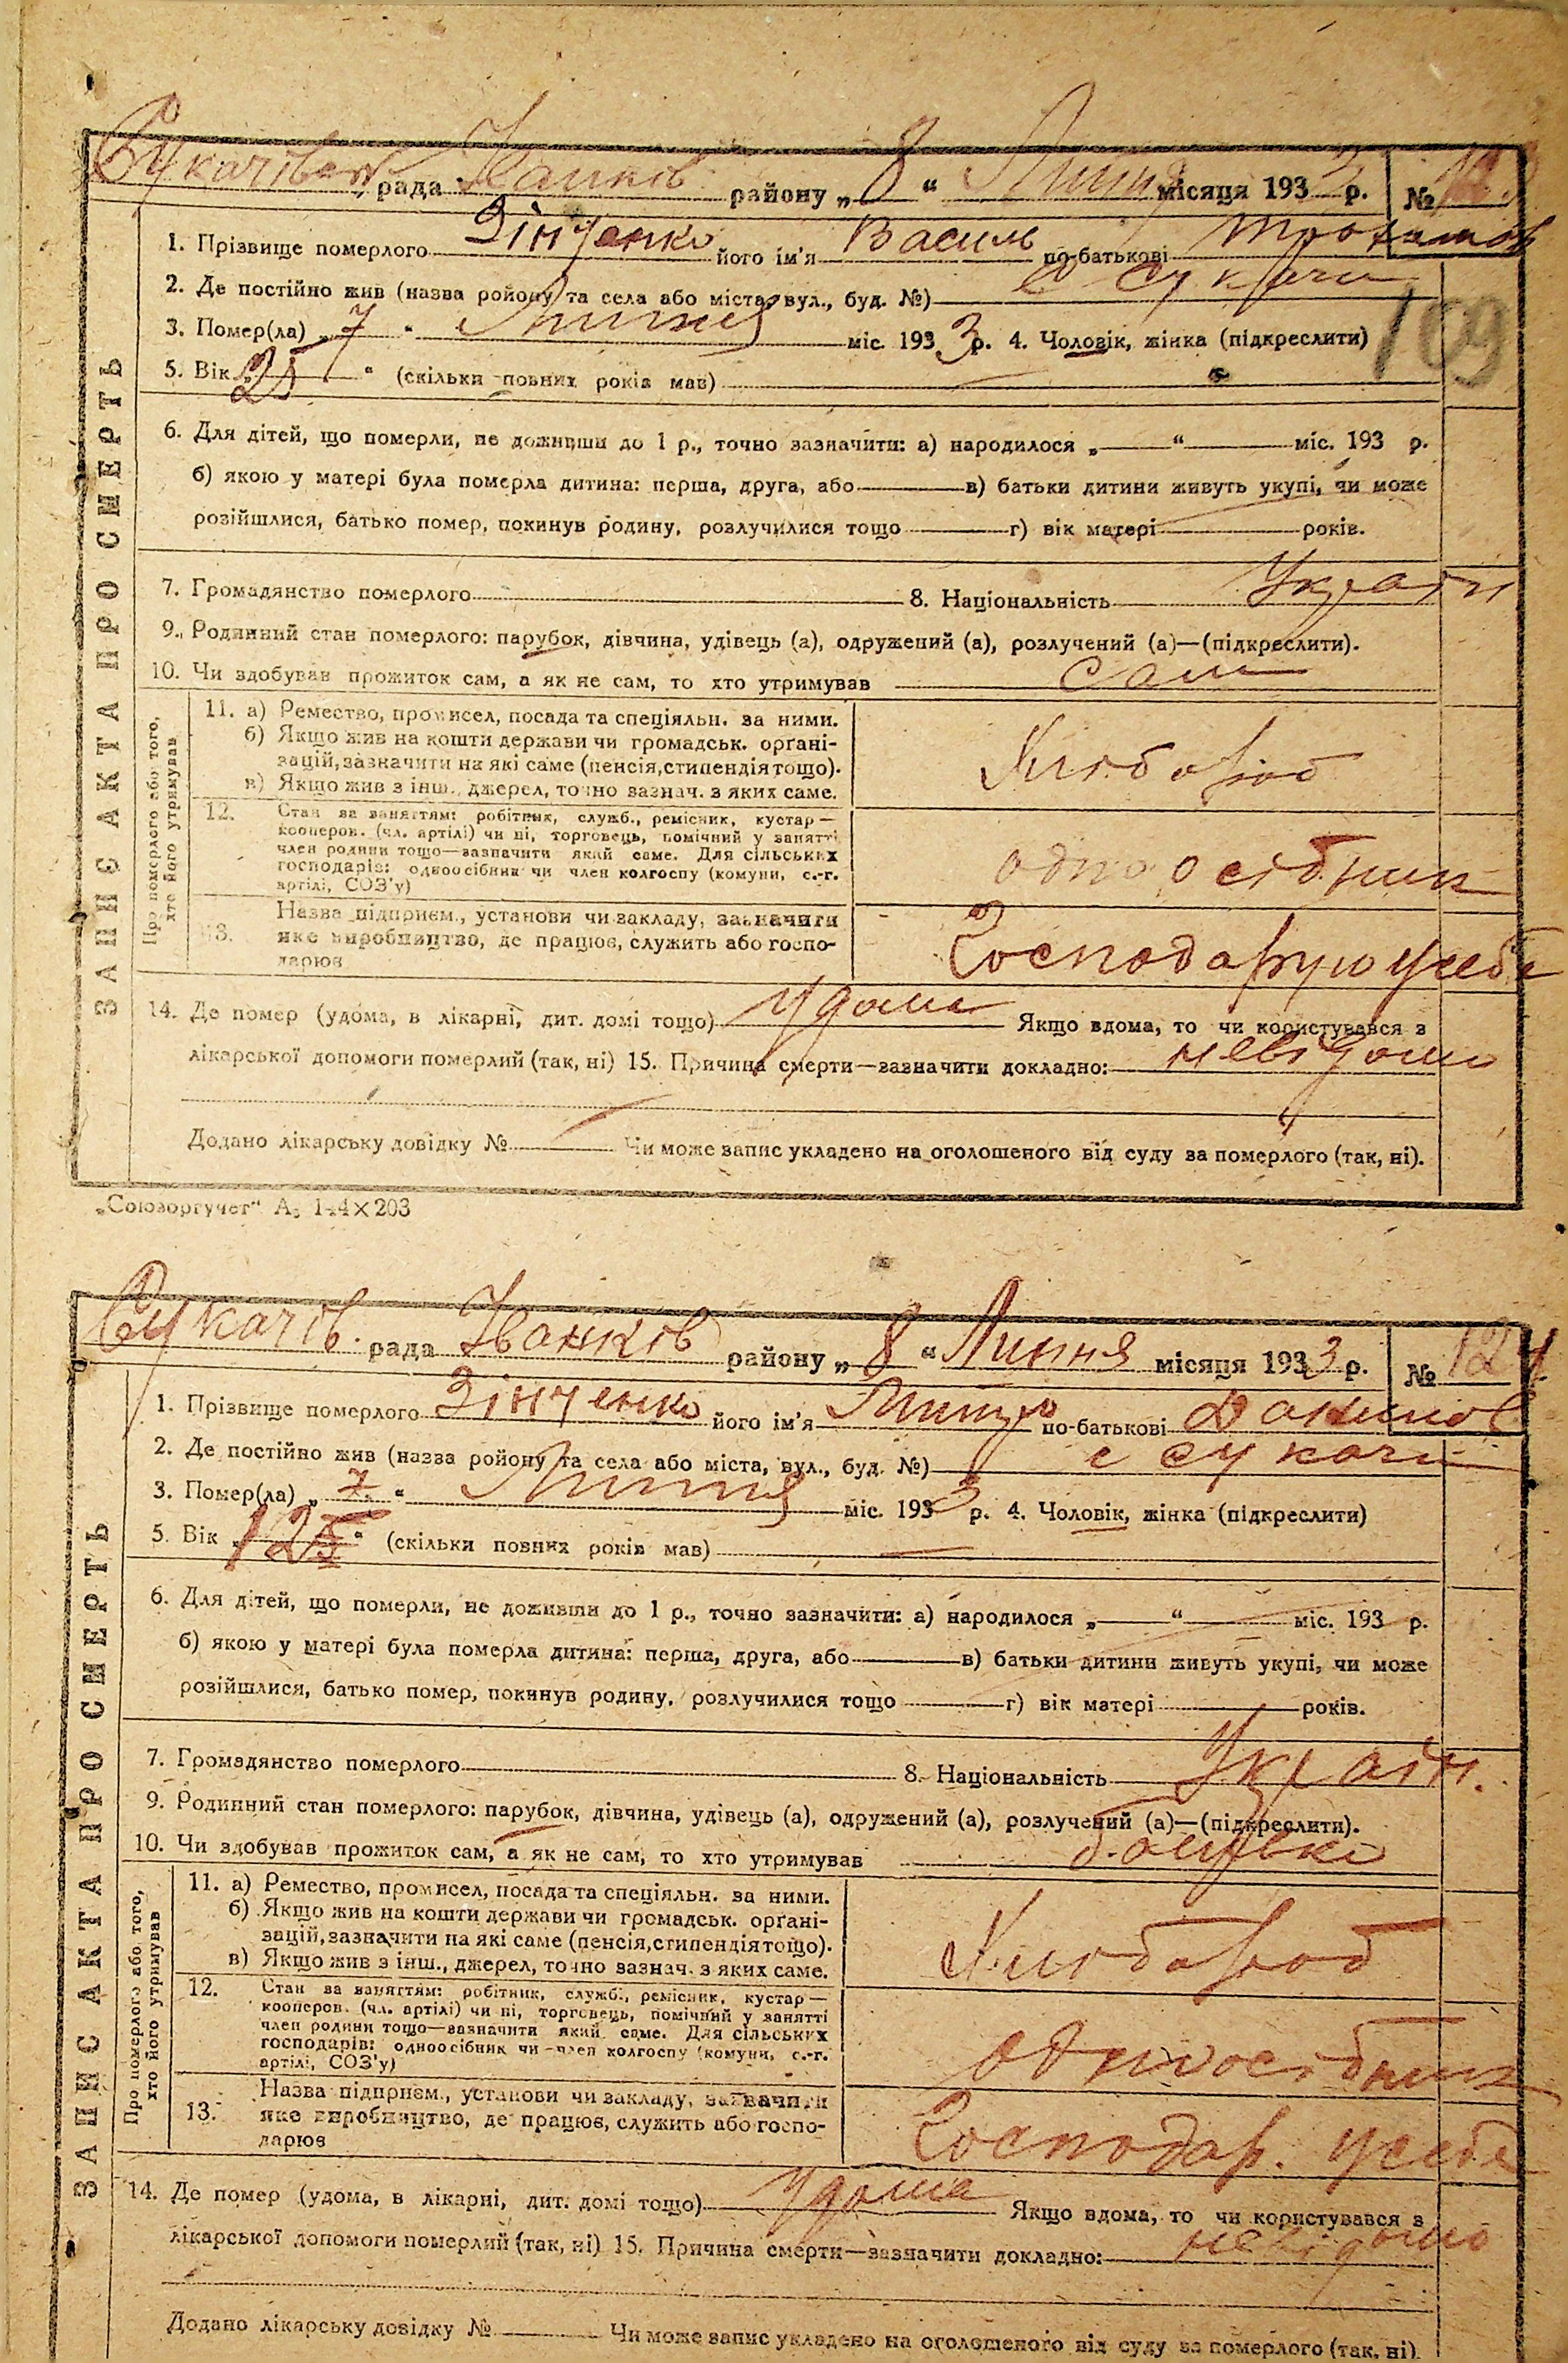 Сукачівськ рада Іванків району „8“ Липня місяця 1933 р. №
1. Прізвище померлого Зінченко його ім'я Василь по-батькові
2. Де постійно жив (назва ройону та села або міста, вул., буд. №) с Сукачі
3. Помер(ла) „7“ Липня міс. 1933 р. 4. Чоловік, жінка (підкреслити)
109
5. Вік „25“ (скільки повних років мав)
6. Для дітей, що померли, не доживши до 1 р., точно зазначити: а) народилося „ “ міс. 193 р.
б) якою у матері була померла дитина: перша, друга, або в) батьки дитини живуть укупі, чи може
розійшлися, батько помер, покинув родину, розлучилися тощо г) вік матері років.
7. Громадянство померлого 8. Національність Україн
9. Родинний стан померлого: парубок, дівчина, удівець (а), одружений (а), розлучений (а)—(підкреслити).
10. Чи здобував прожиток сам, а як не сам, то хто утримував сам
ЗАПИС АКТА ПРО СМЕРТЬ
Про померлого або того,
хто його утримував
11. а) Ремество, промисел, посада та спеціяльн. за ними.
б) Якщо жив на кошти держави чи громадськ. орґані-
зацій, зазначити на які саме (пенсія, стипендія тощо).
в) Якщо жив з інш., джерел, точно зазнач. з яких саме.
Хлібороб
12. Стан за заняттям: робітник, служб., ремісник, кустар—
кооперов. (чл. артілі) чи ні, торговець, помічний у занятті
член родини тощо—зазначити який саме. Для сільських
господарів: одноосібник чи член колгоспу (комуни, с.-г.
артілі, СОЗ'у)
одноосібник
13. Назва підприєм., установи чи закладу, зазначити
яке виробництво, де працює, служить або госпо-
дарює
Господарую у себе
14. Де помер (удома, в лікарні, дит. домі тощо) удома Якщо вдома, то чи користувався з
лікарської допомоги померлий (так, ні) 15. Причина смерти—зазначити докладно: невідомо
Додано лікарську довідку № Чи може запис укладено на оголошеного від суду за померлого (так, ні).
„Союзоргучет“ А₅ 144×203
Сукачів. рада Іванків району „8“ Липня місяця 1933 р. № 124
1. Прізвище померлого Зінченко його ім'я по-батькові
2. Де постійно жив (назва ройону та села або міста, вул., буд. №) с Сукачі
3. Помер(ла) „7“ Липня міс. 1933 р. 4. Чоловік, жінка (підкреслити)
5. Вік (скільки повних років мав)
6. Для дітей, що померли, не доживши до 1 р., точно зазначити: а) народилося „ “ міс. 193 р.
б) якою у матері була померла дитина: перша, друга, або в) батьки дитини живуть укупі, чи може
розійшлися, батько помер, покинув родину, розлучилися тощо г) вік матері років.
7. Громадянство померлого 8. Національність Україн.
9. Родинний стан померлого: парубок, дівчина, удівець (а), одружений (а), розлучений (а)—(підкреслити).
10. Чи здобував прожиток сам, а як не сам, то хто утримував батько
ЗАПИС АКТА ПРО СМЕРТЬ
Про померлого або того,
хто його утримував
11. а) Ремество, промисел, посада та спеціяльн. за ними.
б) Якщо жив на кошти держави чи громадськ. орґані-
зацій, зазначити на які саме (пенсія, стипендія тощо).
в) Якщо жив з інш., джерел, точно зазнач. з яких саме.
Хлібороб
12. Стан за заняттям: робітник, служб., ремісник, кустар—
кооперов. (чл. артілі) чи ні, торговець, помічний у занятті
член родини тощо—зазначити який саме. Для сільських
господарів: одноосібник чи член колгоспу (комуни, с.-г.
артілі, СОЗ'у)
одноосібник
13. Назва підприєм., установи чи закладу, зазначити
яке виробництво, де працює, служить або госпо-
дарює
Господар. у себе
14. Де помер (удома, в лікарні, дит. домі тощо) удома Якщо вдома, то чи користувався з
лікарської допомоги померлий (так, ні) 15. Причина смерти—зазначити докладно: невідомо
Додано лікарську довідку № Чи може запис укладено на оголошеного від суду за померлого (так, ні).